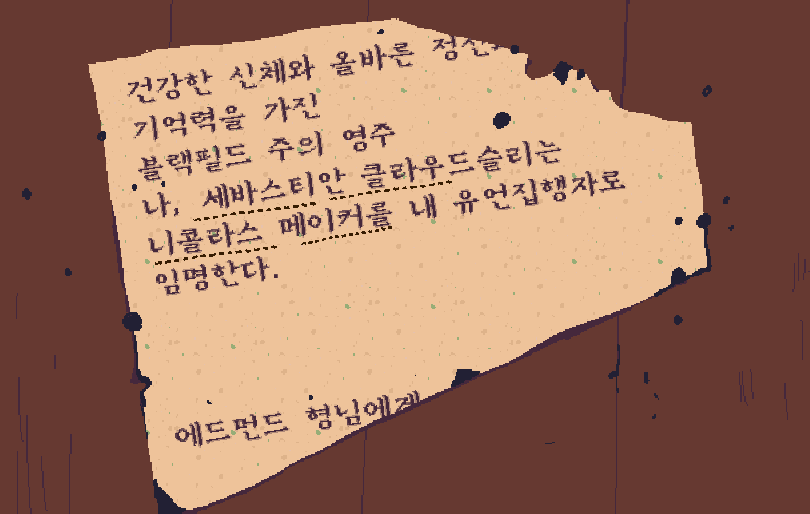 건강한 신체와 올바른 정신,
기억력을 가진
블랙필드 주의 영주
나, 세바스티안 클라우드슬리는
니콜라스 메이커를 내 유언집행자로
임명한다.
에드먼드 형님에겐